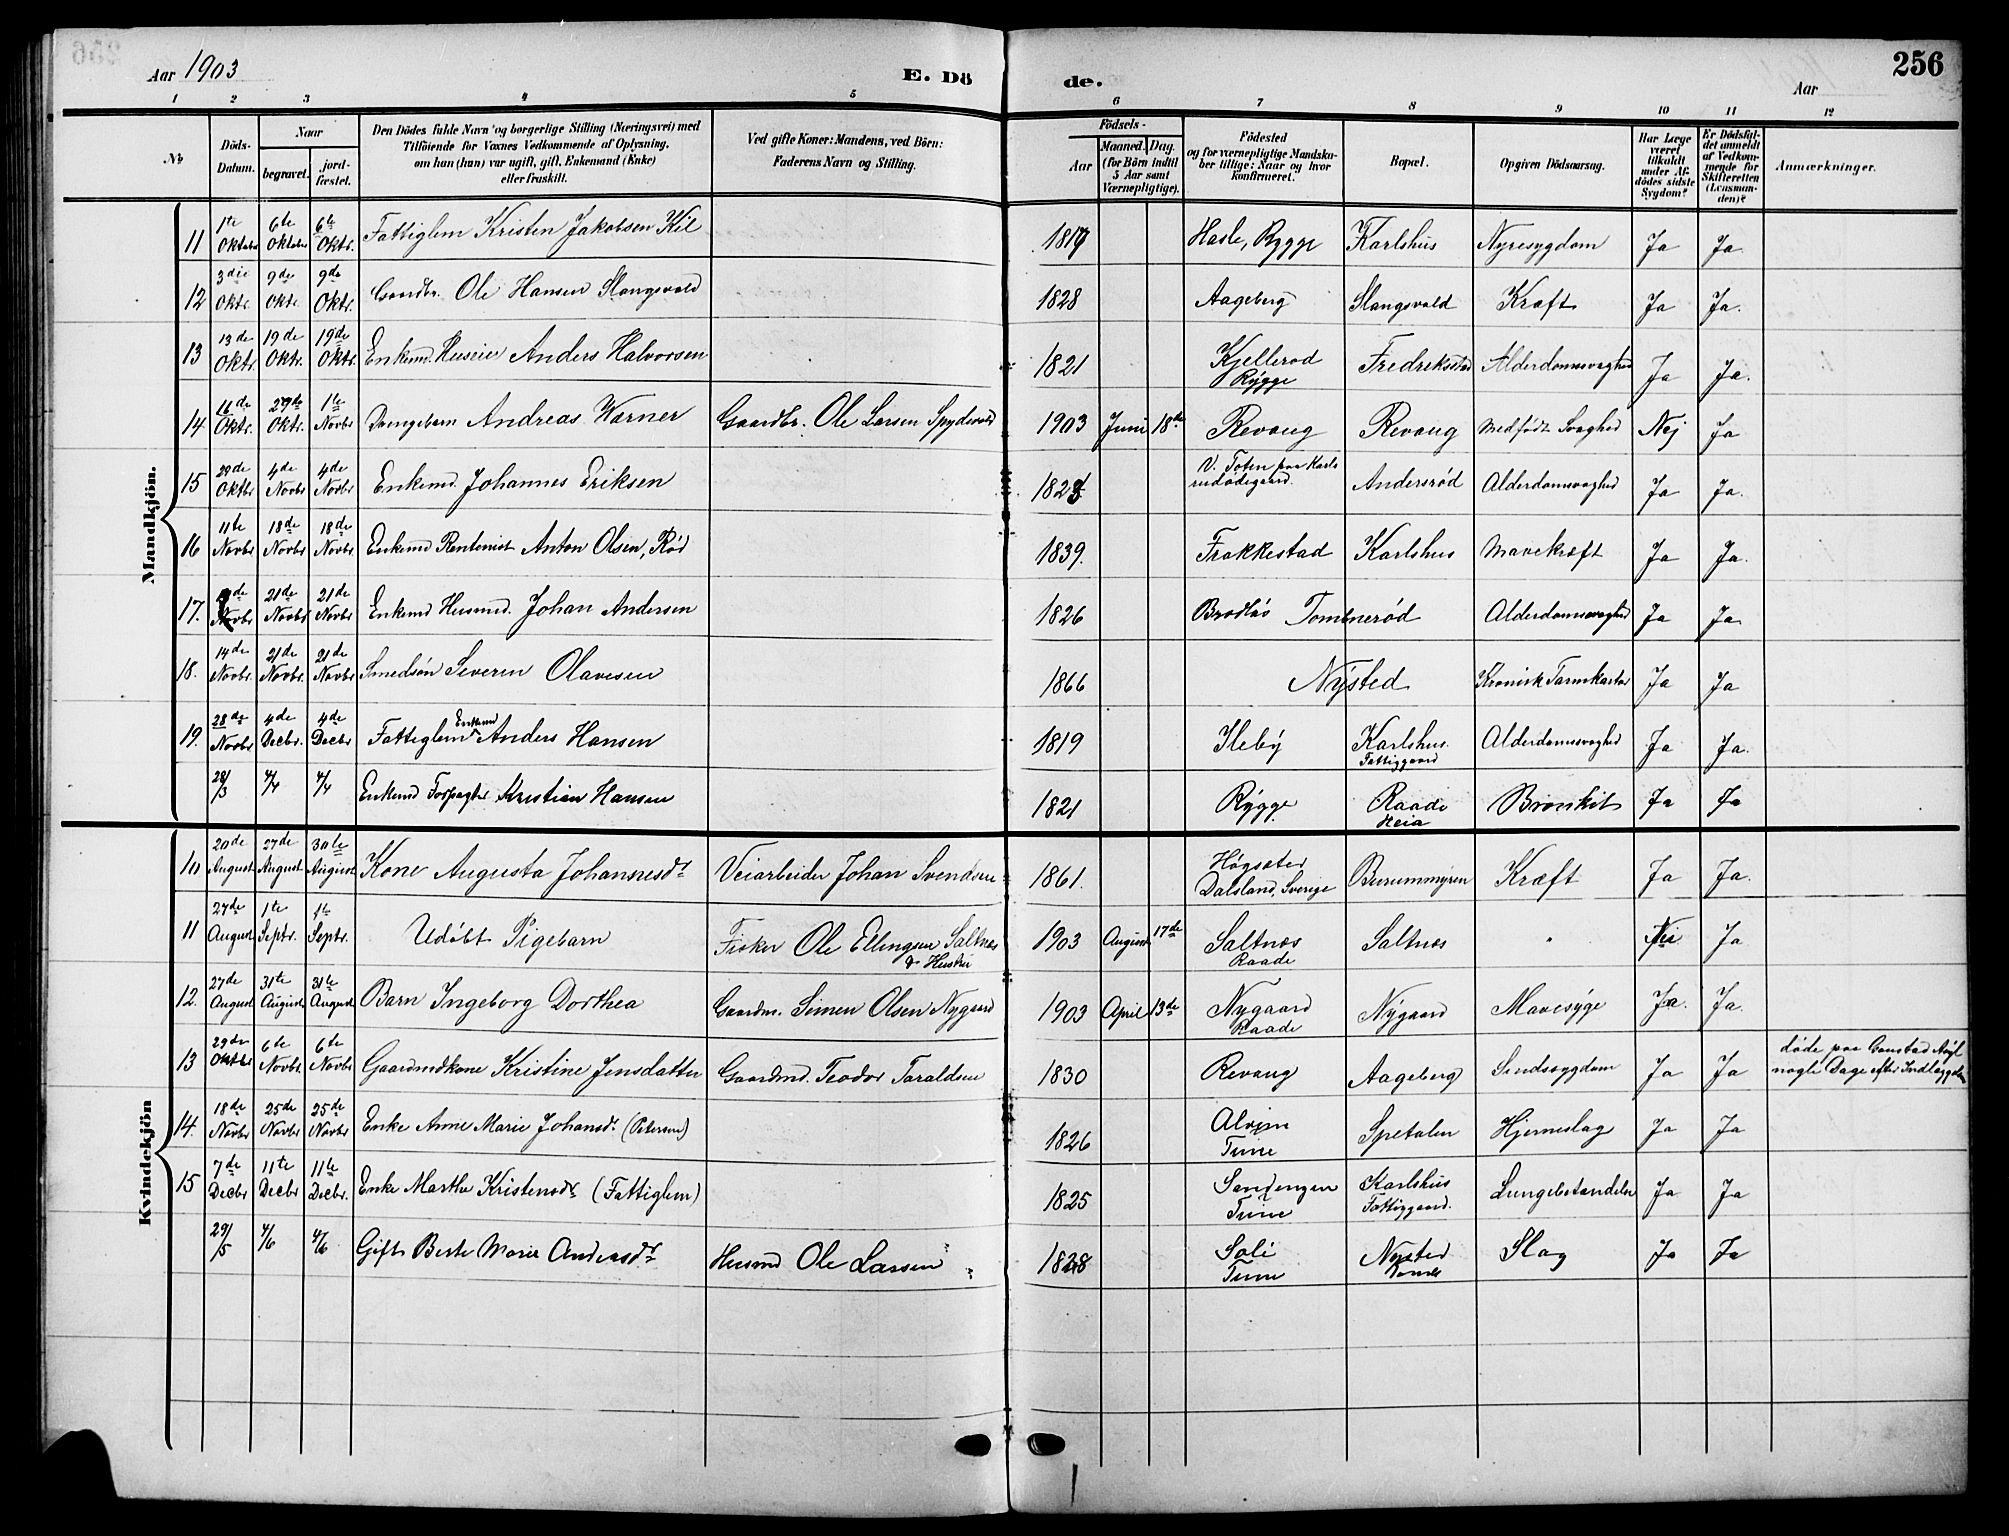 256
Aar 1903
E. Dö
de.
Aar
1 2 3 4 5 6 7 8 9 10 11 12
No
Döds-Datum.
Naar
begravet.
jord-fæstet.
Den Dödes fulde Navn og borgerlige Stilling (Næringsvei) med
Tilföiende for Voxnes Vedkommende af Oplysning,
om han (hun) var ugift, gift, Enkemand (Enke)
eller fraskilt.
Ved gifte Koner: Mandens, ved Börn:
Faderens Navn og Stilling.
Födsels-
Aar
Maaned. Dag.
(for Börn indtil
5 Aar samt
Værnepligtige).
Födested
og for værnepligtige Mandska-
ber tillige: Naar og hvor
Konfirmeret.
Bopæl.
Opgiven Dödsaarsag.
Har Læge
været
tilkaldt
under Af-
dödes sidste
Sygdom?
Er Dödsfal-
det anmeldt
af Vedkom-
mende for
Skifteretten
(Lensman-
den)?
Anmærkninger.
Mandkjön.
11 1te Oktober 6te Oktober 6te Oktr. Fattiglem Kristen Jakobsen Kil 1817 Hasle, Rygge Karlshus Nyresygdom Ja Ja
12 3die Oktr. 9de Oktr. 9de Oktr. Gaardbr. Ole Hansen Slangsvold 1828 Aageberg Slangsvold Kræft Ja Ja.
13 13de Oktr. 19de Oktr. 19de Oktr. Enkemd. Huseier Anders Halvorsen 1821 Kjellerød Rygge Fredriksstad Alderdomssvaghed Ja Ja.
14 16de Oktr. 29de Oktr. 1te Novbr Drengebarn Andreas Werner Gaardbr. Ole Larsen Spydevold 1903 Juni 18de Revaug Revaug Medfødt Svaghed Nej Ja
15 29de Oktbr 4de Novbr 4de Novbr Enkemd. Johannes Eriksen V. Toten paa Karls rudødegaard. Andersrød Alderdomssvaghed Ja Ja.
16 11te Novbr 18de Novbr. 18de Novbr. Enkemd Rentenist Anton Olsen, Rød 1839. Trøkkestad Karlshus Mavekræft Ja Ja.
17. Novbr 21de Novbr 21de Novbr Enkemd Husmd. Johan Andersen 1826 Brodløs Tombnerød Alderdomssvaghed Ja Ja
18. 14de Novbr. 21de Novbr. 21de Novbr. Smedsøn Severin Olavesen 1866 Nysted Kronisk Tarmkatar Ja Ja
19. 28de Novbr 4de Decbr. 4de Decbr Fattiglem Enkemd Anders Hansen 1819 Heby Karlshus Fattiggaard Alderdomssvaghed Ja Ja.
28/3 4/4 4/4 Enkemd Forpagter Kristian Hansen 1821 Rygge Raade Heia Bronkit Ja Ja
Kvindekjön
10 20de August 27de August 30te August Kone Augusta Johannesdr Veiarbeider Johan Svendsen 1861. Høgsæter Dalsland, Sverige Burummyren Kræft Ja Ja.
11 27de August 1te Septr. 1te Septr. Udøbt Pigebarn Fisker Ole Ellingsen Saltnæs & Hustru 1903 August 17de Saltnæs Raade Saltnæs " Nei Ja
12. 27de August 31te August 31te August Barn Ingeborg Dorthea Gaardm. Simen Olsen Nygaard 1903 April 13de Nygaard Raade Nygaard Mavesyge Ja. Ja.
13 29de Oktbr 6te Novbr. 6te Novbr. Gaardmdkone Kristine Jensdatter Gaardmd. Teodor Taraldsen 1830 Revaug Aageberg Sindssygdom Ja Ja døde paa Gaustad Asyl nogle Dage efter Indlæggelse
14. 18de Novbr 25de Novbr 25de Novbr Enke Anne Marie Johansdr (Petersen) 1826 Alvim Tune Spetalen Hjerneslag Ja Ja
15 7de Decbr 11te Decbr 11te Decbr. Enke Marthe Kristensdr (Fattiglem) 1825 Sandengen Tune Karlshus Fattiggaard. Lungebetændelse Ja Ja
29/5 4/6 4/6 Gift Berte Marie Andersdr Husmd Ole Larsen 1828 Soli Tune Nysted Slag Ja Ja